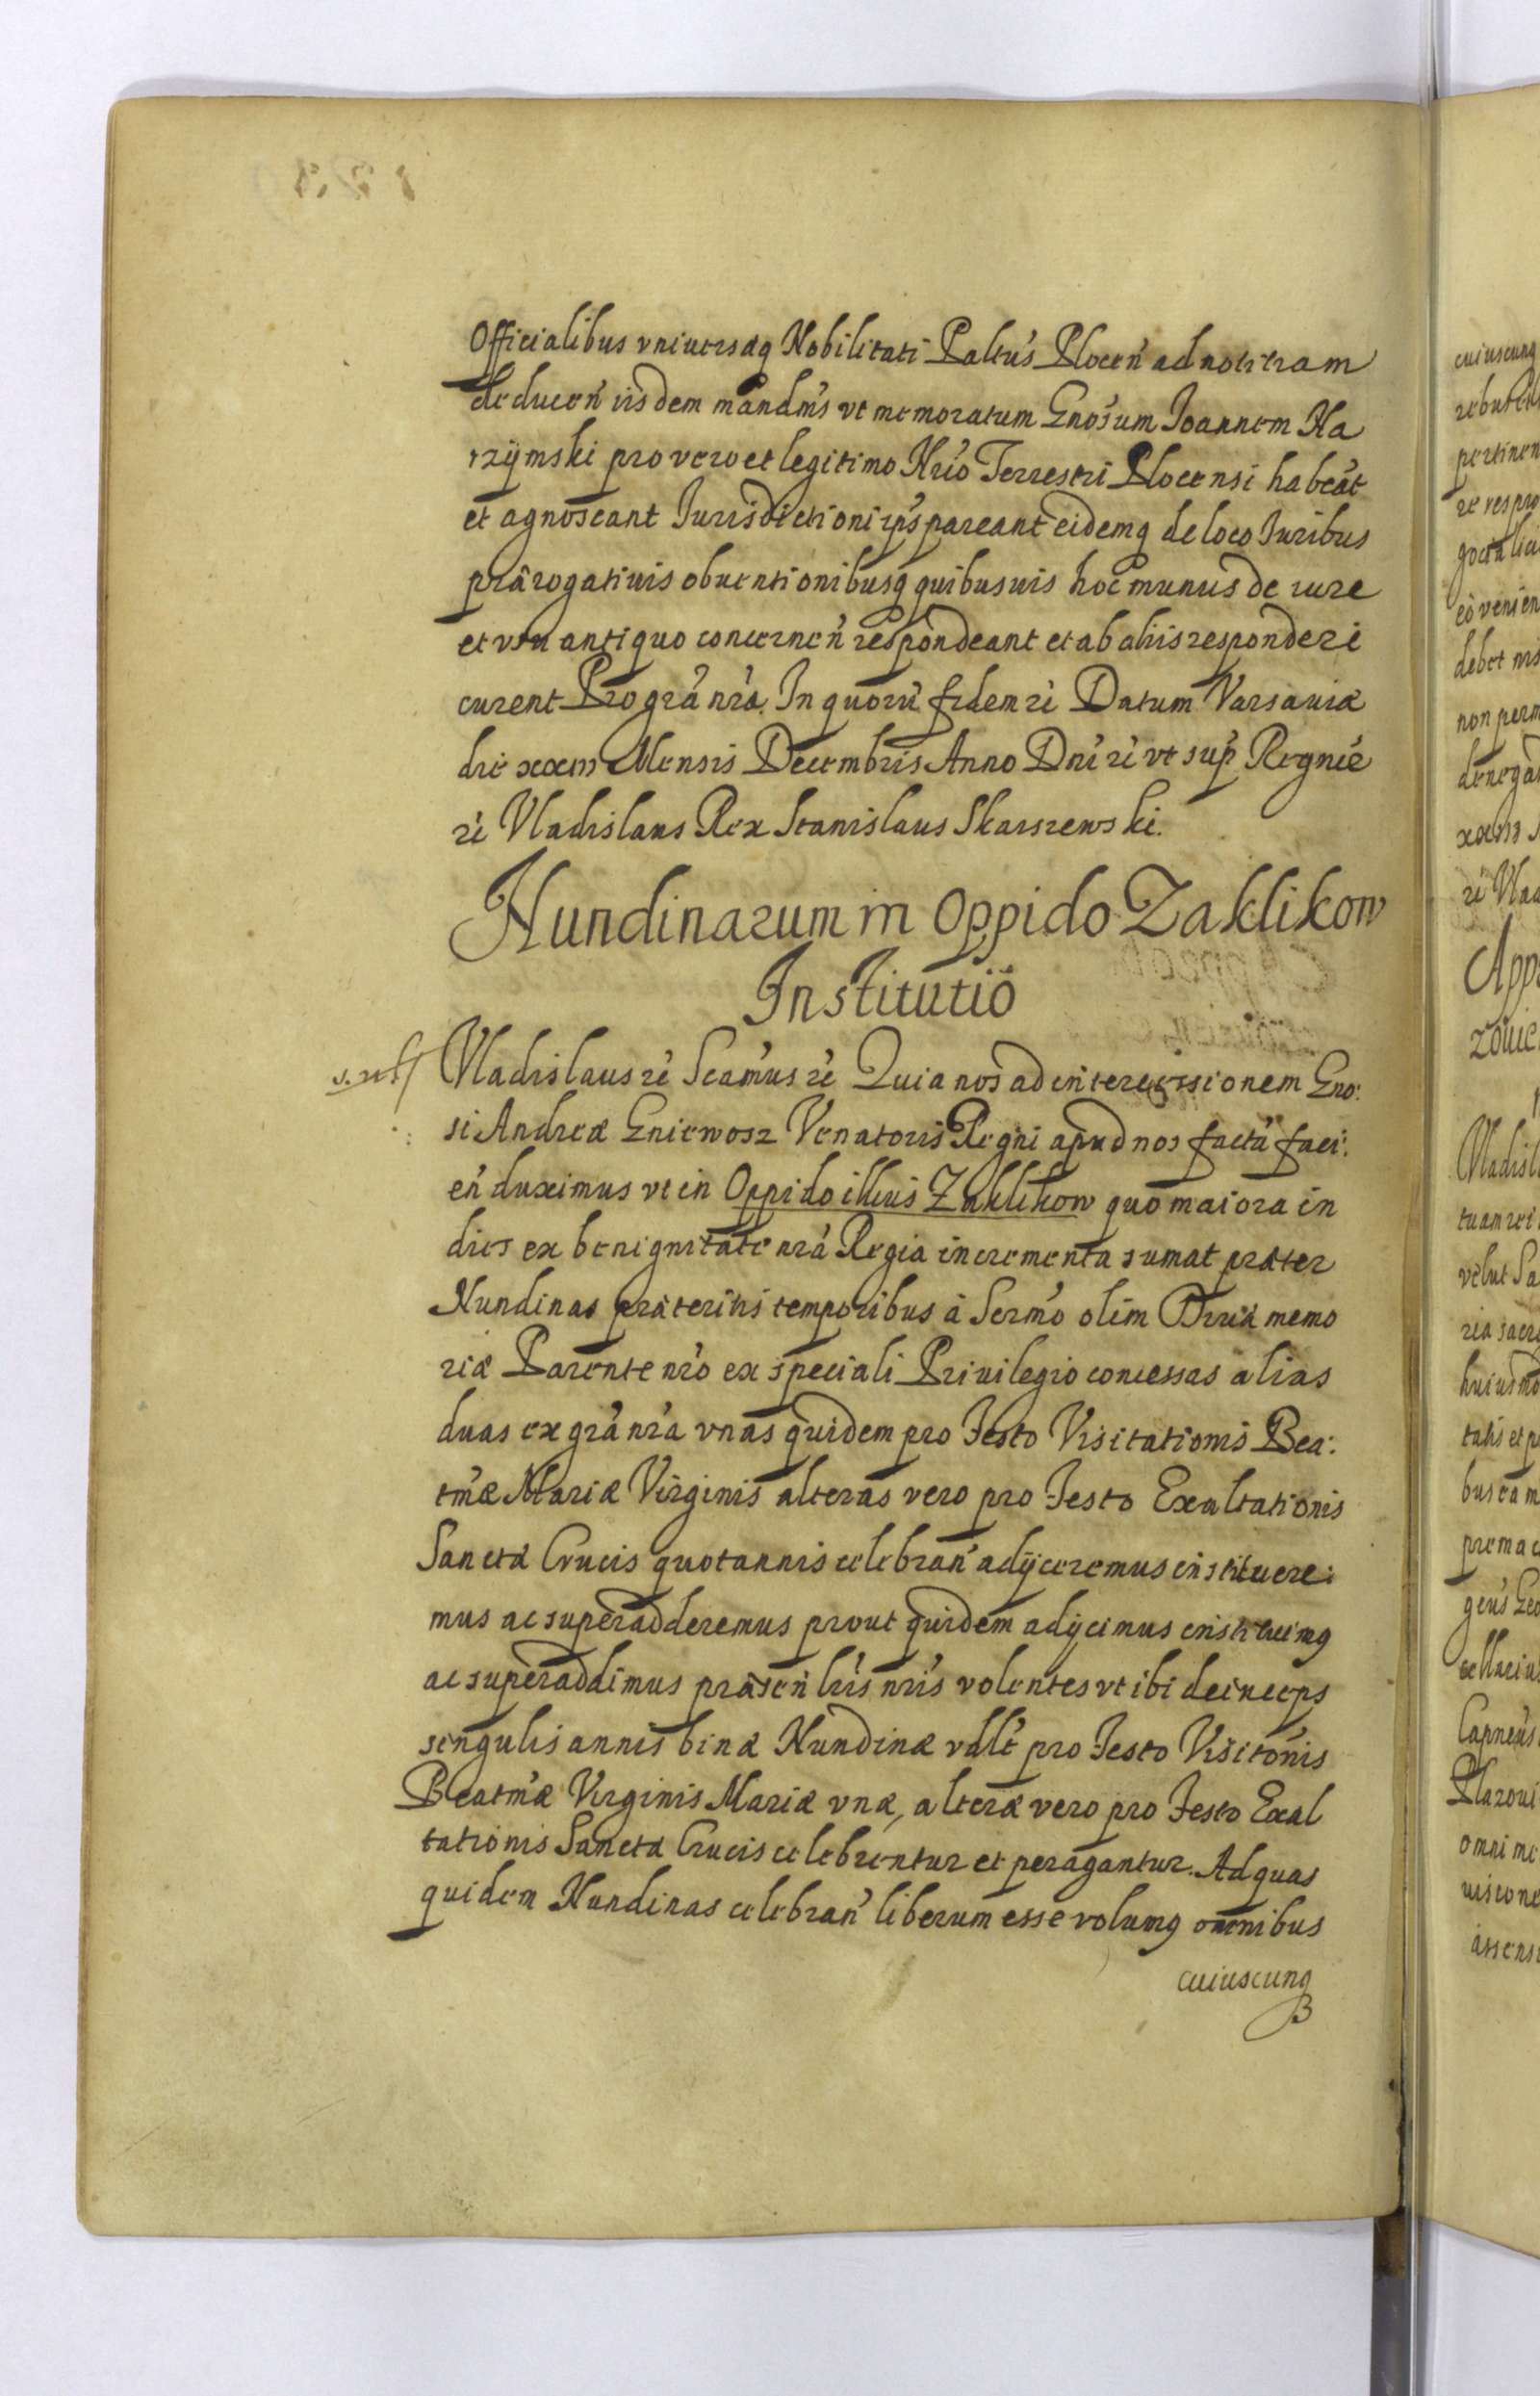 Officialibus vniuersaq Nobilitati Paltûs Plocen̄ ad notitiam
deducen̄ iisdem mandm̄s vt memoratum Gnōsum Ioannem Na
rzÿmski pro vero et legitimo Nrīo Terrestri Plocensi habeāt
et agnoscant Jurisdictioni ip̄s pareant eidemq de loco Iuribus
prærogatiuis obuentionibusq quibusuis hoc munus de iure
et vsu antiquo concernen̄ respondeant et ab aliis responderi
curent Pro grā nrā. In quorū fidem rē Datum Varsauiæ
die xxiii Mensis Decembris Anno Dn̄i rē vt sup̄ Regnīe
rē Vladislaus Rex Stanislaus Skarszewski.
Nundinarum in Oppido Zaklikow
Institutio
Vladislaus rē Scām̄us rē Quia nos ad intercessionem Gno:
si Andreæ Gniewosz Venatoris Regni apud nos factā faci:
en̄ duximus vt in Oppido illius Zaklikow quo maiora in
dies ex benignitate nrā Regia incrementa sumat præter
Nundinas præteritis temporibus à Serm̄o olim Diuæ memo
riæ Parente nrō ex speciali Priuilegio concessas alias
duas ex grā nrā vnas quidem pro Festo Visitationis Bea:
tm̄æ Mariæ Virginis alteras vero pro Festo Exaltationis
Sanctæ Crucis quotannis celebran̄ adÿceremus institueres:
mus ac superadderemus prout quidem adÿcimus instituimq
ac superaddimus præsen̄ lrīs nrīs volentes vt ibi deinceps
singulis annis binæ Nundinæ vdlt̄ pro Festo Visitōnis
Beatm̄æ Virginis Mariæ vnæ, alteræ vero pro Festo Exal
tationis Sanctæ Crucis celebrentur et peragantur. Ad quas
quidem Nundinas celebran̄ liberum esse volumq omnibus
cuiuscunq